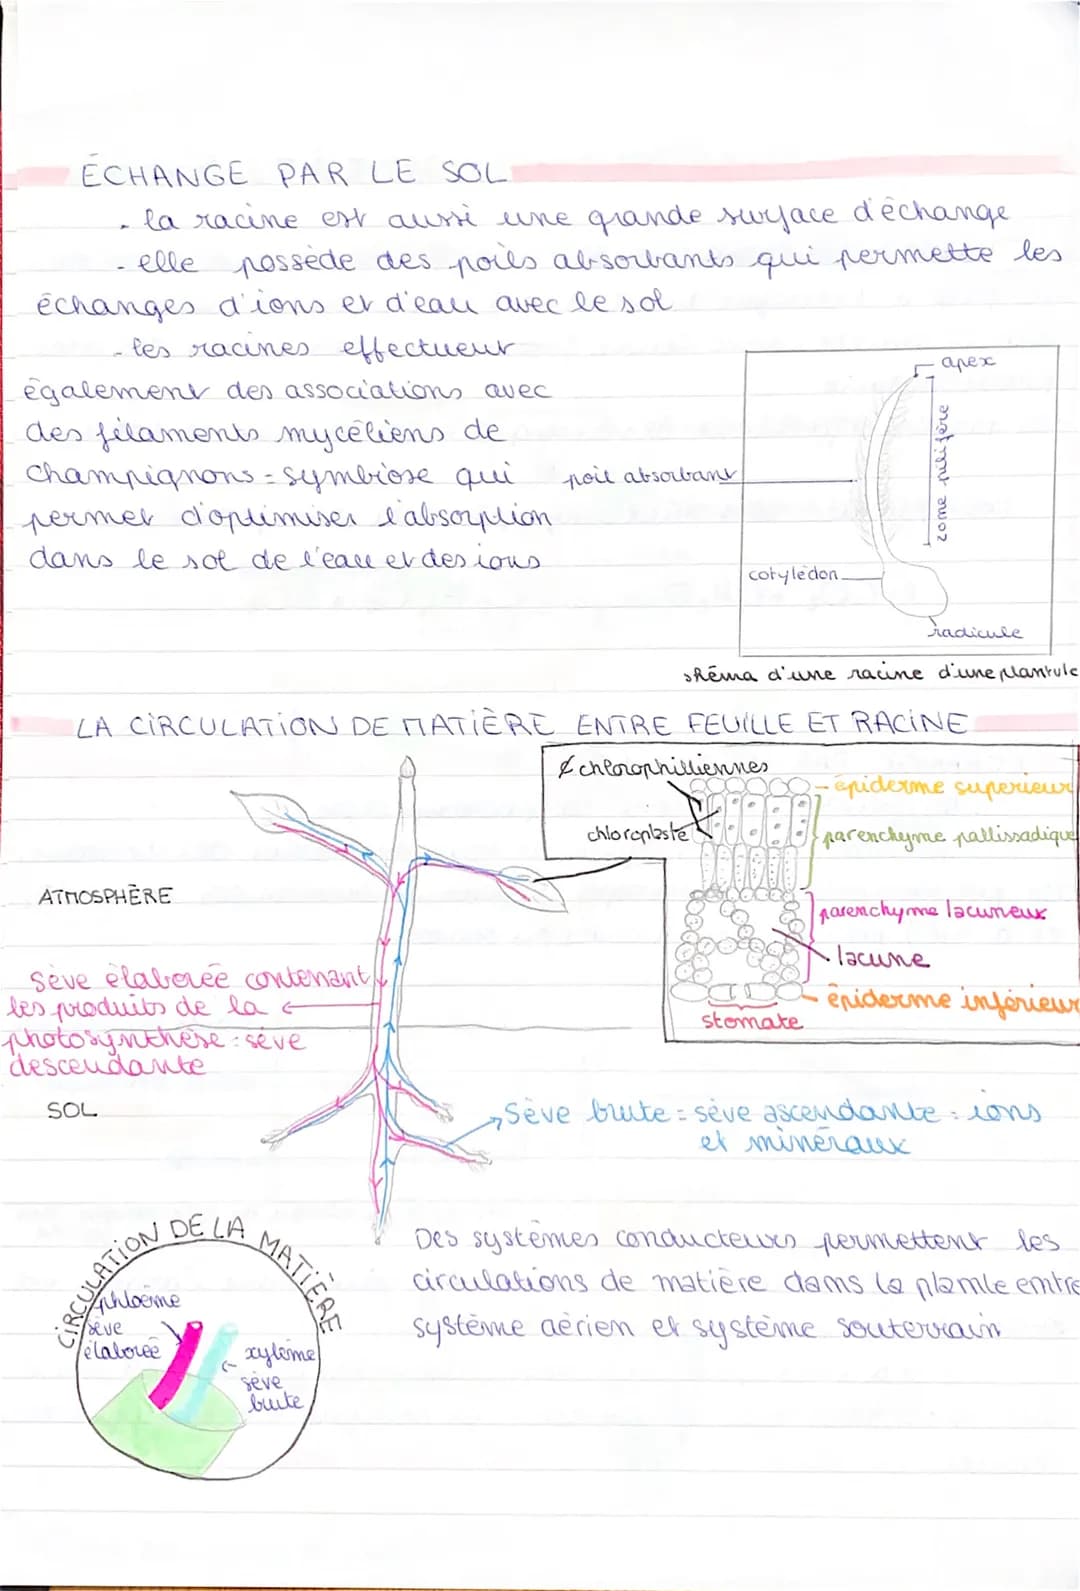 ÉCHANGE PAR LE SOL
- la racine est aussi une grande surface d'échange
- elle possède des poils absorbants qui permette les
échanges d'ions et d'eau avec le sol
- les racines effectuent
également des associations avec
des filaments mycéliens de
champignons = symbiose qui
permet d'optimiser l'absorption
dans le sol de l'eau et des ions
apex
zone pilifère
poil absorbant
cotylédon
radicule
shéma d'une racine d'une plantule
LA CIRCULATION DE MATIÈRE ENTRE FEUILLE ET RACINE
chlorophilliennes
épiderme superieur
chloroplaste
parenchyme pallissadique
ATMOSPHÈRE
parenchyme lacuneux
lacune
épiderme inférieur
stomate
Sève élaborée contenant
les produits de la
photosynthèse = sève
descendante
SOL
Sève brute = sève ascendante = ions
et minéraux
CIRCULATION DE LA MATIÈRE
phloème
sève
élaborée
xylème
sève
brute
Des systèmes conducteurs permettent les
circulations de matière dans la plante entre
système aérien et système souterrain